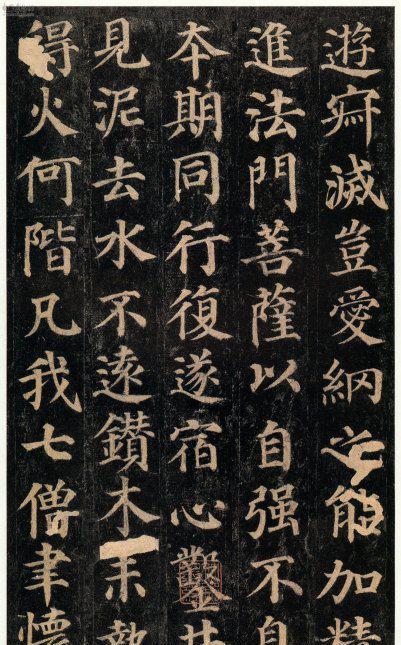 遊寂滅豈愛網之能加精
進法門菩薩以自强不
本期同行復遂宿心鑿
見泥去水不遠鑽木未熱
得火何階凡我七僧聿懷